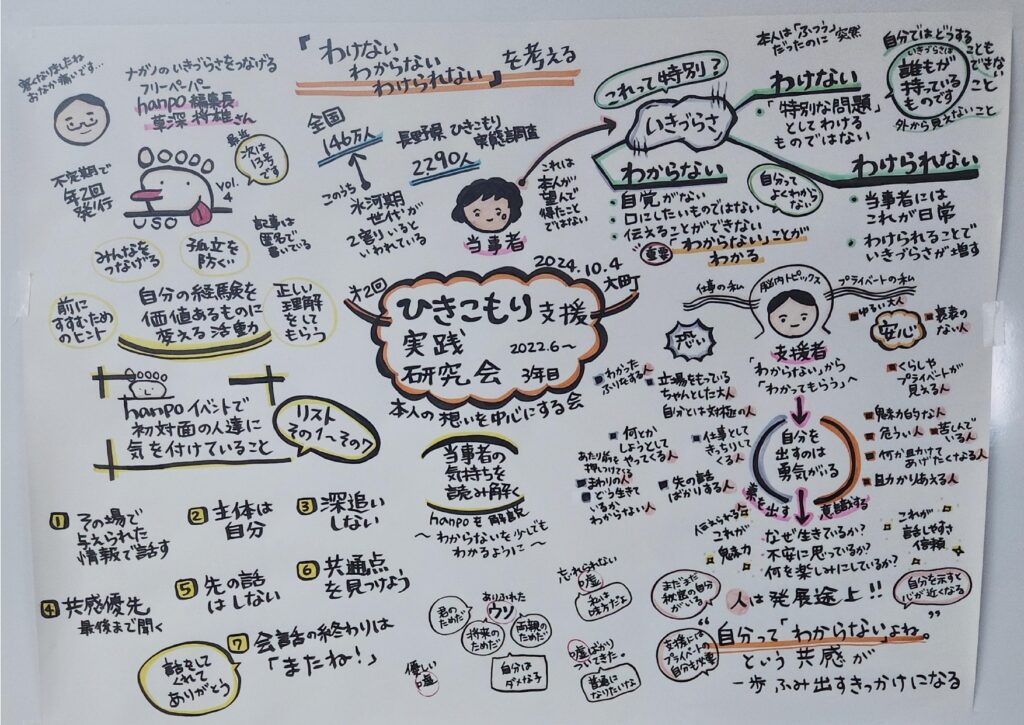 寒くなりましたね
おなか痛いです…
ナガノのいきづらさをつなげる
フリーペーパー
hanpo 編集長
草深 将雄さん
不定期で
年2回
発行
USO
vol.
4
最近
次は
13号
です
記事は
匿名で
書いている
みんなを
つなげる
孤立を
防ぐ
前に
すすむため
のヒント
自分の経験を
価値あるものに
変える活動
正しい
理解を
して
もらう
hanpoイベントで
初対面の人達に
気を付けていること
リスト
その1〜その7
1 その場で
与えられた
情報で話す
2 主体は
自分
3 深追い
しない
4 共感優先
最後まで聞く
5 先の話
はしない
6 共通点
を見つけよう
7 会話の終わりは
「またね!」
話をして
くれて
ありがとう
『わけない
わからない
わけられない』を考える
全国
146万人
長野県 ひきこもり
実態調査
2290人
このうち
氷河期
世代が
2割いると
いわれている
当事者
これは
本人が
望んで
得たこと
ではない
第2回
ひきこもり支援
実践
研究会
2022.6〜
3年目
2024.10.4
大町
本人の想いを中心にする会
当事者の
気持ちを
読み解く
hanpoを解説
〜わからないを少しでも
わかるように〜
ありふれた
ウソ
君の
ためだ
将来の
ためだ
両親の
ためだ
自分は
ダメな子
優しい
嘘
忘れられない
嘘
私は
味方だよ
嘘ばかり
ついてきた。
普通に
なりたいな
これって特別?
いきづらさ
本人は「ふつう」
だったのに 突然
わけない
「特別な問題」
としてわける
ものではない
自分ではどうする
こともできないこと
いきづらさは
誰もが
持っている
ものです
外から見えないこと
わからない
・自覚がない
・口にしたいものではない
・伝えることができない
自分って
よくわから
ない
重要
「わからない」ことが
わかる
わけられない
・当事者には
これが日常
・わけられることで
いきづらさが増す
仕事の私
脳内トピックス
プライベートの私
支援者
「わからない」から
「わかってもらう」へ
恐い
わかった
ふりをする人
立場をもっている
ちゃんとした大人
自分とは対極の人
何とか
しようとして
やってくる人
仕事として
きっちりして
くる人
あたり前を
押しつけている
まわりの人
どう生きて
いるか
わからない人
先の話
ばかりする人
安心
ゆるい大人
裏表の
ない人
くらしや
プライベートが
見える人
魅力的な人
危うい人
苦しんで
いる人
何か助けて
あげたくなる人
助かりあえる人
自分を
出すのは
勇気がいる
素を出す
意識する
伝えられる
これが
魅力
なぜ生きているか?
不安に思っているか?
何を楽しみにしているか?
これが
話しやすさ
信頼
まだまだ
秋限の自分
がいる
人は発展途上!!
自分を示すと
心が近くなる
支援には
プライベートの
自分も必要
“自分って「わからない」よね。”
という共感が
一歩ふみ出すきっかけになる